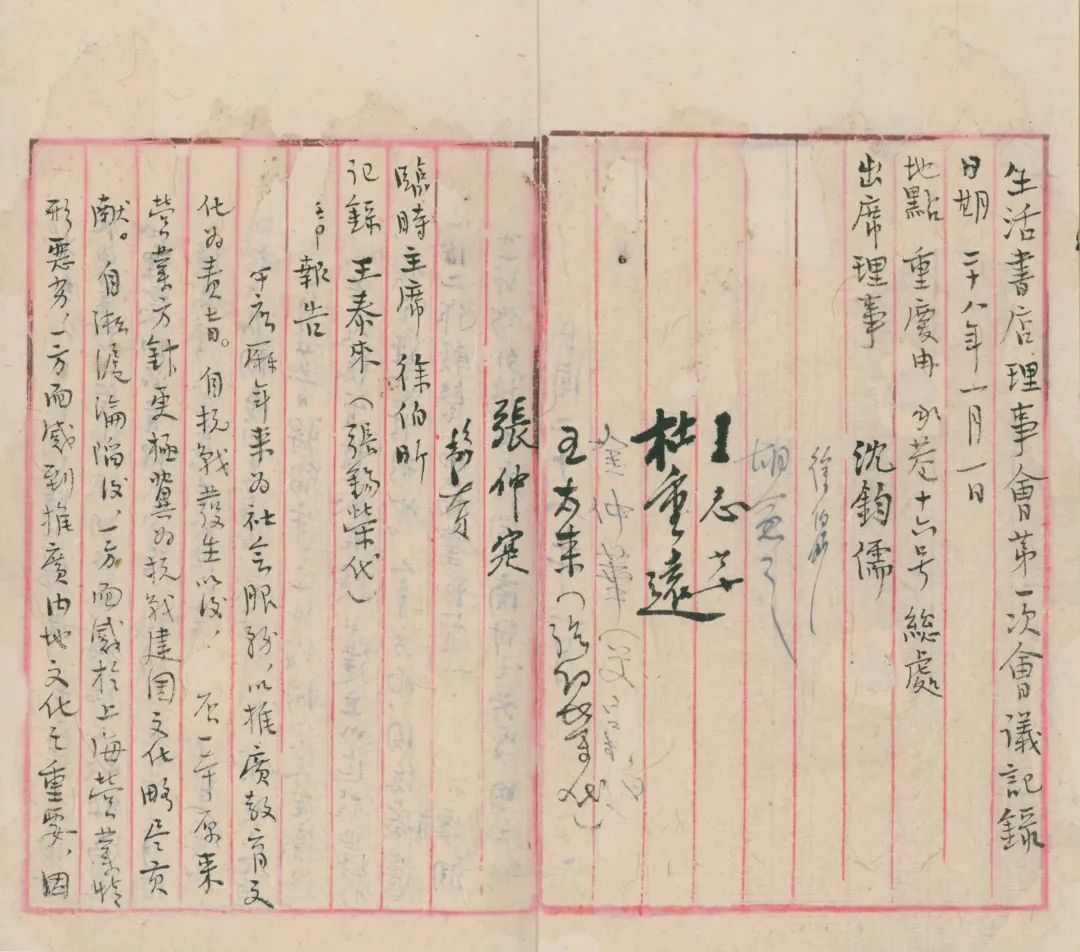 生活書店理事會第一次會議記錄
日期 二十八年一月一日
地點 重慶冉家巷十六号總處
出席理事 沈鈞儒
徐伯昕
胡愈之
王志莘
杜重遠
金仲華
王太来（張錫荣代）
張仲寔
韜奮
臨時主席 徐伯昕
记錄 王泰來（張錫榮代）
報告
本店歷年来为社会服務，以推廣教育文
化为責旨。自抗戰發生以後，店一本原来
营業方針更極冀为抗戰建国文化略尽貢
献。自淞滬淪陷後，一方面感於上海营業情
形惡劣，一方面感到推廣内地文化之重要，因